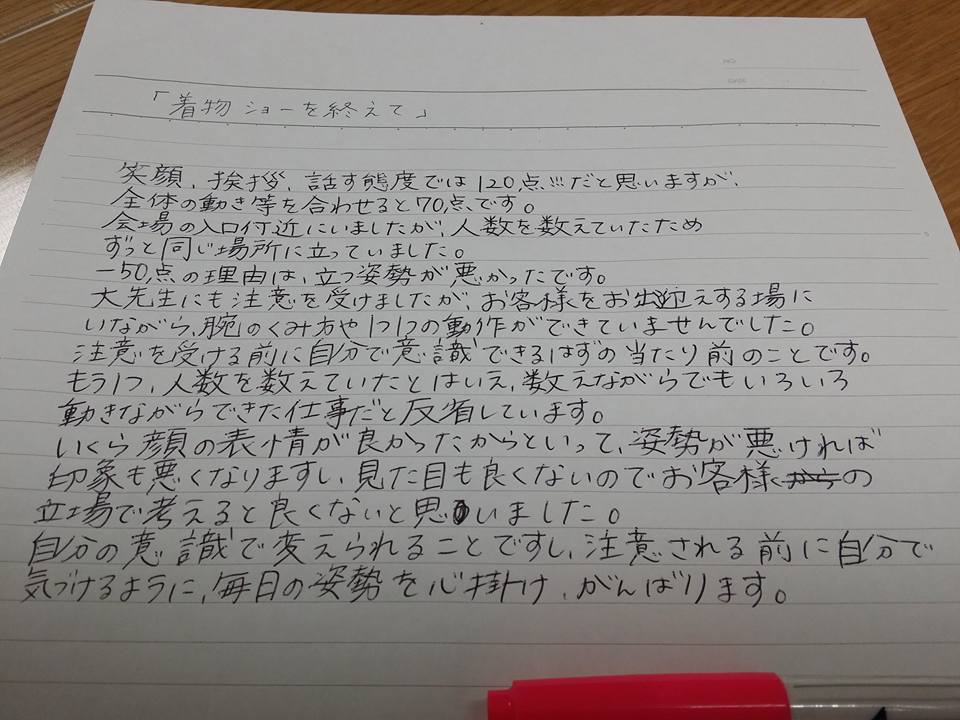 「着物ショーを終えて」
笑顔、挨拶、話す態度では120点!!!だと思いますが、
全体の動き等を合わせると70点です。
会場の入口付近にいましたが、人数を数えていたため
ずっと同じ場所に立っていました。
-50点の理由は、立つ姿勢が悪かったです。
大先生にも注意を受けましたが、お客様をお出迎えする場に
いながら、腕のくみ方や1つ1つの動作ができていませんでした。
注意を受ける前に自分で意識できるはずの当たり前のことです。
もう1つ、人数を数えていたとはいえ、数えながらでもいろいろ
動きながらできた仕事だと反省しています。
いくら顔の表情が良かったからといって、姿勢が悪ければ
印象も悪くなりますし、見た目も良くないのでお客様からの
立場で考えると良くないと思いました。
自分の意識で変えられることですし、注意される前に自分で
気づけるように、毎日の姿勢を心掛け、がんばります。